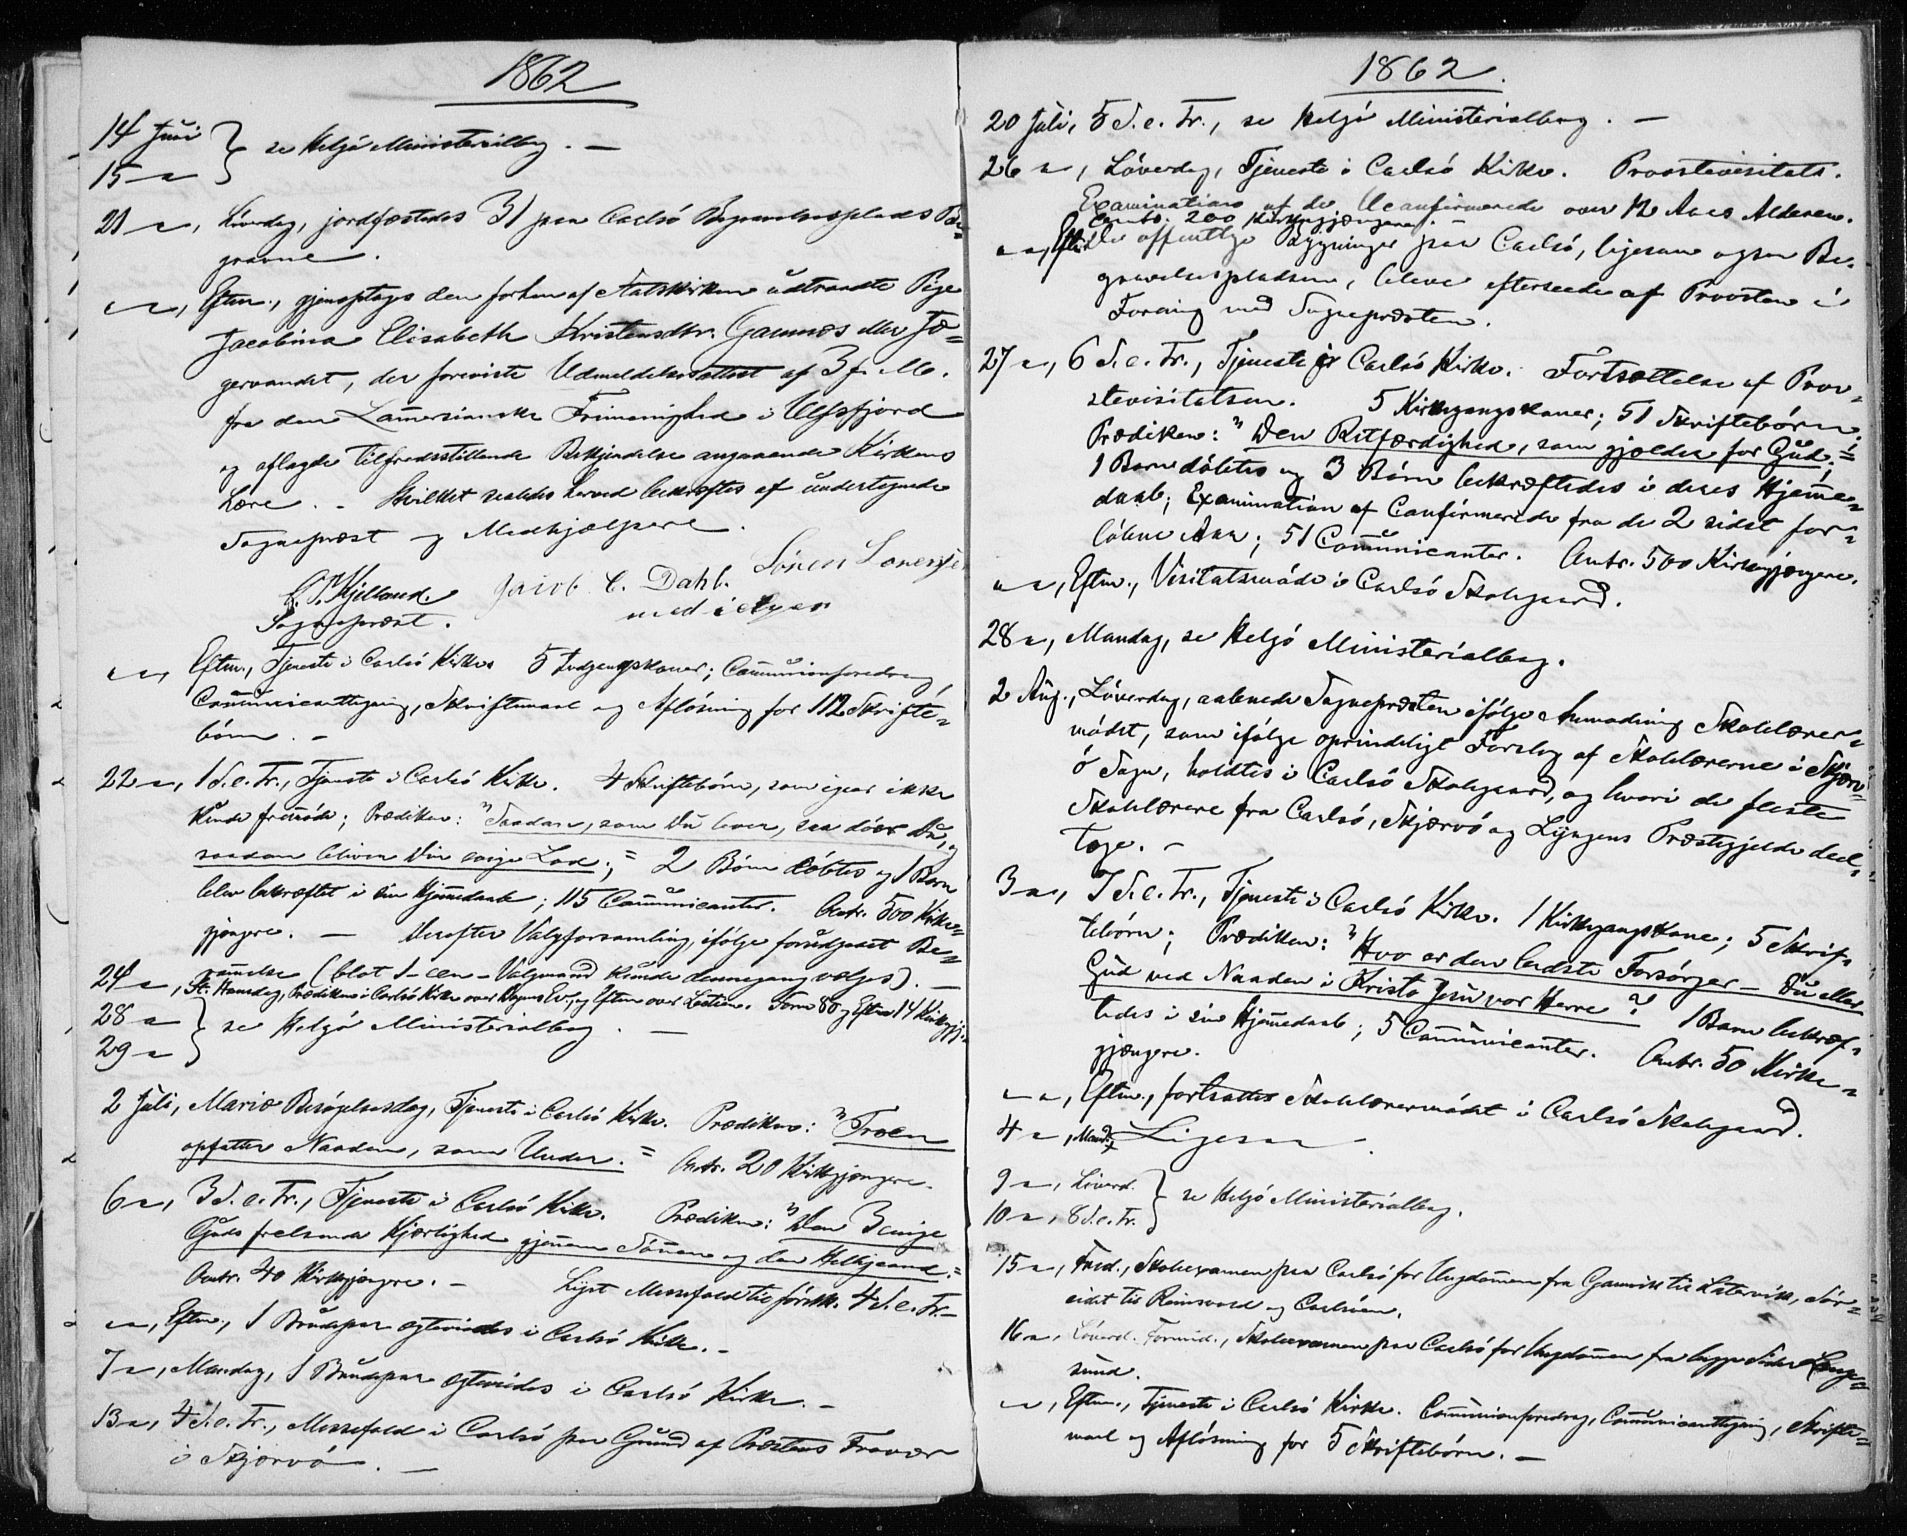 1862
14 Juni } se Helgö Ministerialbog. —
15 "
21 ", Löverdag, jordfæstedes 31 paa Carlsö Begravelsesplads Be-
gravne.
" ", Eftm., gjenoptages den forhen af Statskirken udtraadte Pige
Jacobina Elisabeth Kristensdtr. Gamnæs eller Jæ=
gervandet, der foreviste Udmeldelsesattest af 3 f. M.
fra den Lammersianske Frimenighed i Ulfsfjord
og aflagde tilfredsstillende Bekjendelse angaaende Kirkens
Lære. - Hvilket saaledes herved bekræftes af undertegnede
Sognepræst og Medhjælpere.
Kjelland. Jacob C. Dahl. Sören Sörensen
Sognepræst. med i elgen
" ", Eftm., Tjeneste i Carlsö Kirke 5 Indgangskoner; Communionforedrag,
Communicanttegning, Skriftemaal og Aflösning for 112 Skrifte=
börn. -
22 ", 1 S. e. Tr., Tjeneste i Carlsö Kirke. 4 Skriftebörn, som igaar ikke
kunde fremmöde; Prædiken: "Saadan, som Du lever, saa döer Du, og
saadan bliver Din evige Lod;" 2 Börn döbtes og 1 Barn
blev bekræftet i sin Hjemmedaab; 115 Communicanter. Antr. 500 Kirke=
gjængere. — Derefter Valgforsamling, ifölge forudgaaet Be=
rammelse (blot 1 - een - Valgmand kunde dennegang vælges). —
24 ", St. Hansdag, Prædiken i Carlsö Kirke over Dagens Ev., og Eftm over Lectien. Form 80 og Eftm 14 Kirkegj.
28 " } se Helgö Ministerialbog. —
29 "
2 Juli, Mariæ Besögelsesdag, Tjeneste i Carlsö Kirke. Prædiken: "Troen
opfatter Naaden, som Under." Antr. 20 Kirkegjængere.
6 ", 3 S. e. Tr., Tjeneste i Carlsö Kirke. Prædiken: "Den 3 enige
Guds frelsende Kjærlighed gjennem Sönnen og den Helligaand."
Antr. 40 Kirkegjængere. - Lyst Messefald til förstk. 4 S. e. Tr. -
" ", Eftm., 1 Brudepar egtevies i Carlsö Kirke. -
7 ", Mandag, 1 Brudepar egtevies i Carlsö Kirke. -
13 ", 4 S. e. Tr., Messefald i Carlsö paa Grund af Præstens Fravær
i Skjærvö. —
1862.
20 Juli, 5 S. e. Tr., se Helgö Ministerialbog. —
26 ", Löverdag, Tjeneste i Carlsö Kirke. Proostevisitats.
Examination af de Uconfirmerede over 12 Aars Alderen.
Antr. 200 Kirkegjængere. -
" ", Eftm. De offentlige Bygninger paa Carlsö, ligesom ogsaa Be-
gravelsespladsen, bleve efterseede af Proosten i
Forening med Sognepræsten.
27 ", 6 S. e. Tr., Tjeneste i Carlsö Kirke. Fortsættelse af Proo-
stevisitatsen. 5 Kirkegangskoner; 51 Skriftebörn.
Prædiken: "Den Retfærdighed, som gjælder for Gud;"
1 Barn döbtes og 3 Börn bekræftedes i deres Hjemme=
daab; Examination af Confirmerede fra de 2 sidst for=
löbne Aar; 51 Communicanter. Antr. 500 Kirkegjængere.
" ", Eftm., Visitatsmöde i Carlsö Skolegaard.
28 ", Mandag, se Helgö Ministerialbog.
2 Aug., Löverdag, aabnede Sognepræsten ifölge Anmodning Skolelærer=
mödet, som ifölge oprindeligt Forslag af Skolelærerne i Skjærv=
ö Sogn, holdtes i Carlsö Skolegaard, og hvori de fleste
Skolelærere fra Carlsö, Skjærvö og Lyngens Præstegjelde deel=
toge. -
3 ", 7 S. e. Tr., Tjeneste i Carlsö Kirke. 1 Kirkegangskone; 5 Skrif=
tebörn; Prædiken: "Hvo er den bedste Forsörger - Du eller
Gud ved Naaden i Kristo Jesu vor Herre?" 1 Barn bekræf=
tedes i sin Hjemmedaab; 5 Communicanter. Antr. 50 Kirke=
gjængere.
" ", Eftm., fortsattes Skolelærermödet i Carlsö Skolegaard.
4 ", Mand., Ligesaa.
9 ", Löverd. } se Helgö Ministerialbog.
10 ", 8 S. e. Tr.
15 ", Fred., Skoleexamen paa Carlsö for Ungdommen fra Gamvik til Latervik, Sör=
eidet til Reinsvold og Carlsöen.
16 ", Löverd. Formid., Skoleexamen paa Carlsö for Ungdommen fra begge Sider Lang=
sund.
" ", Eftm., Tjeneste i Carlsö Kirke. Communionforedrag, Communicanttegning, Skrifte=
maal og Aflösning for 5 Skriftebörn. —